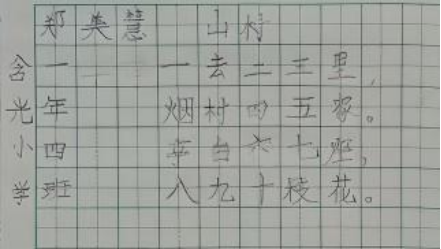 含光小学
一年四班
郑美慧
山村
一去二三里,
烟村四五家。
亭台六七座,
八九十枝花。